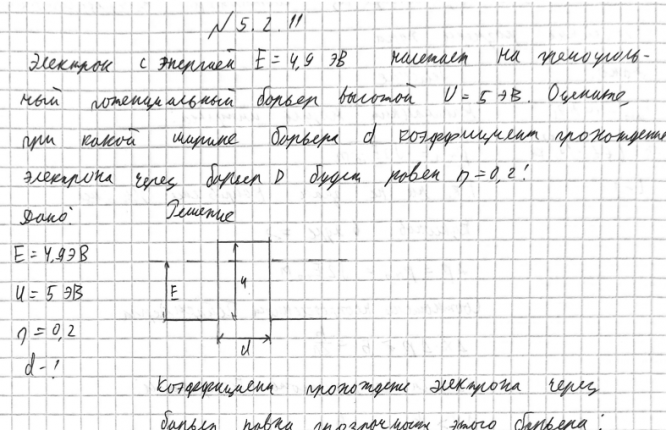 № 5.2.11
Электрон с энергией E = 4,9 эВ налетает на прямоуголь-
ный потенциальный барьер высотой U = 5 эВ. Оцените,
при какой ширине барьера d коэффициент прохождения
электрона через барьер D будет равен η = 0,2?
Дано:
Решение
E = 4,9 эВ
U = 5 эВ
η = 0,2
d - ?
E
U
d
Коэффициент прохождения электрона через
барьер равна прозрачности этого барьера: